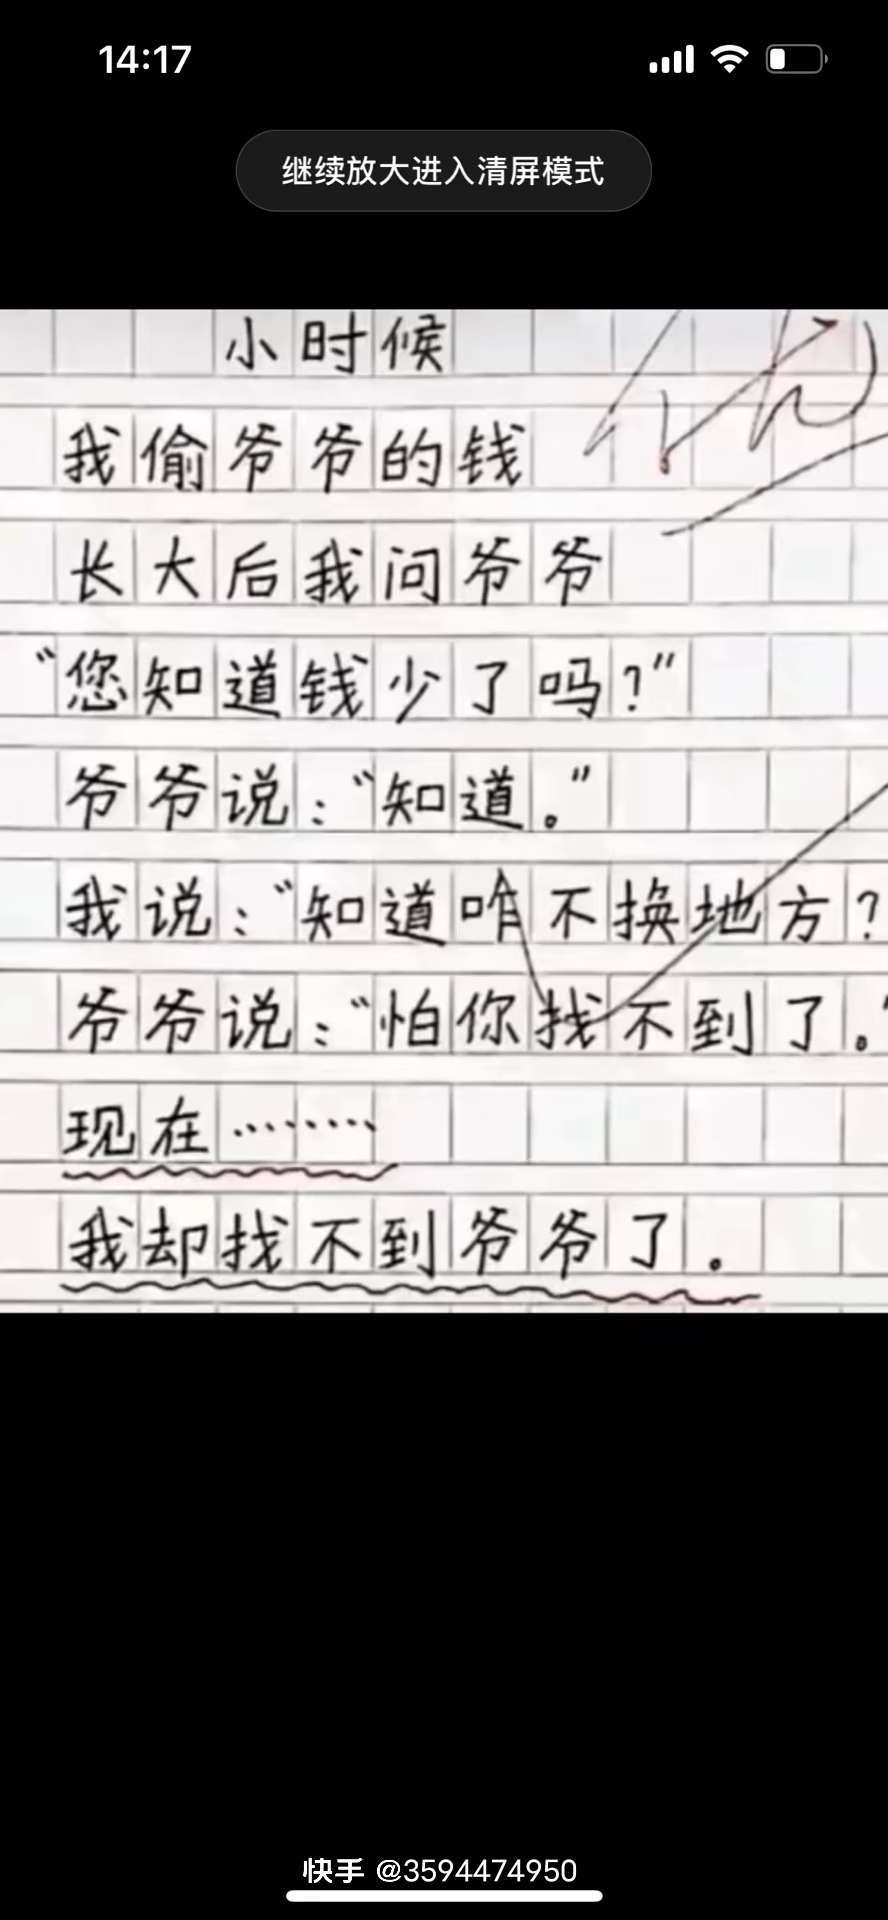 14:17
继续放大进入清屏模式
小时候
优
我偷爷爷的钱
长大后我问爷爷
“您知道钱少了吗?”
爷爷说:“知道。”
我说:“知道咋不换地方?
爷爷说:“怕你找不到了。”
现在……
我却找不到爷爷了.
快手 @3594474950